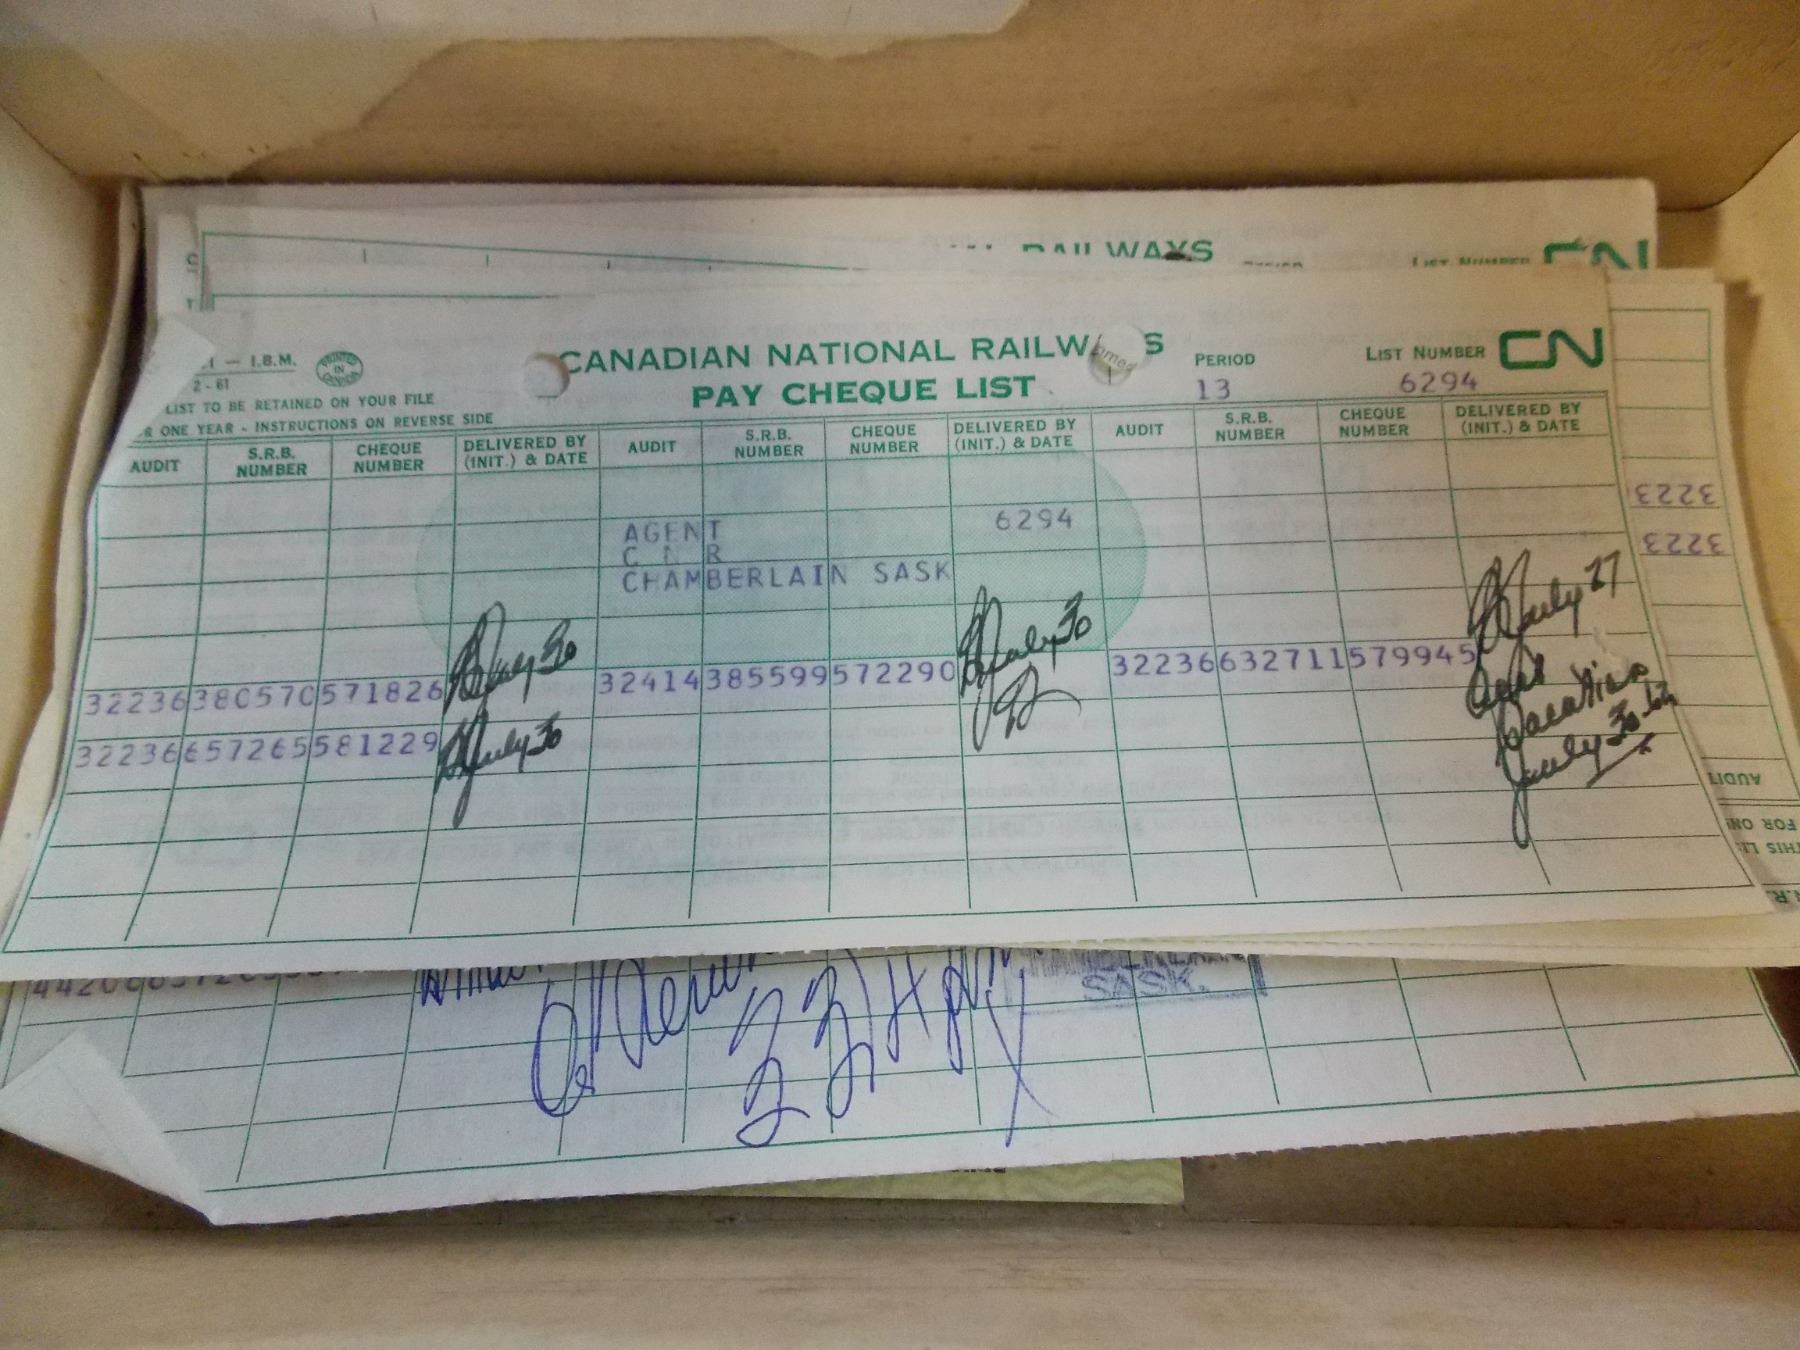 RAILWAYS
LIST NUMBER CN
I.B.M.
2 - 61
PRINTED IN CANADA
CANADIAN NATIONAL RAILW S
PAY CHEQUE LIST
PERIOD
13
LIST NUMBER
6294
CN
LIST TO BE RETAINED ON YOUR FILE
R ONE YEAR - INSTRUCTIONS ON REVERSE SIDE
AUDIT S.R.B. NUMBER CHEQUE NUMBER DELIVERED BY (INIT.) & DATE AUDIT S.R.B. NUMBER CHEQUE NUMBER DELIVERED BY (INIT.) & DATE AUDIT S.R.B. NUMBER CHEQUE NUMBER DELIVERED BY (INIT.) & DATE
AGENT 6294
C N R
CHAMBERLAIN SASK
32236 380570 571826 July 30 32414 385599 572290 July 30 32236 632711 579945 July 27
32236 657265 581229 July 30
Vacation
July 30
3223
3223
AUDIT
FOR ON
THIS LI
SASK.